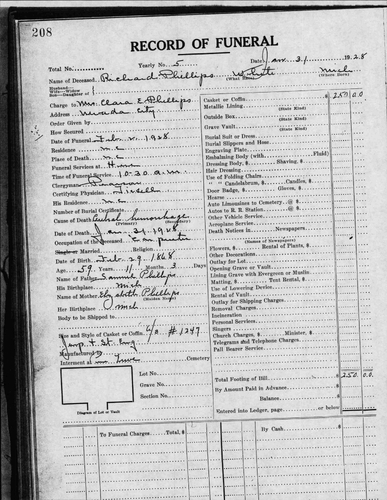 208
RECORD OF FUNERAL
Total No. Yearly No. 5 Date Jan. 31 1928
Name of Deceased Richard Phillips White Mich
(What Race) (Where Born)
Husband—
Wife—Widow
Son—Daughter of
Charge to Mrs. Clara E. Phillips
Address Nevada City
Order Given by
How Secured
Date of Funeral Feb. 1928
Residence N.C.
Place of Death N.C.
Funeral Services at Home
Time of Funeral Service 10:30 a.m.
Clergyman
Certifying Physician
His Residence N.C.
Number of Burial Certificate
Cause of Death hemorrhage
(Primary) (Secondary)
Date of Death Jan. 31, 1928
Occupation of the Deceased Carpenter
Single or Married Religion
Date of Birth Feb. 29 1868
Age 59 11 Months 3 Days
Name of Father Phillips
His Birthplace Mich
Name of Mother Elizabeth Phillips
(Maiden Name)
Her Birthplace Mich
Body to be Shipped to
Size and Style of Casket or Coffin 6/3 #1247
Manufactured by
Interment at Cemetery
Lot No.
Grave No.
Section No.
Diagram of Lot or Vault
Casket or Coffin $ 250 00
Metallic Lining
(State Kind)
Outside Box
(State Kind)
Grave Vault
(State Kind)
Burial Suit or Dress
Burial Slippers and Hose
Engraving Plate
Embalming Body (with Fluid)
Dressing Body, $ Shaving, $
Hair Dressing
Use of Folding Chairs
" " Candelabrum, $ Candles, $
Door Badge, $ Gloves, $
Hearse
Auto Limousines to Cemetery @ $
Autos to R. R. Station @ $
Other Vehicle Service
Aeroplane Service
Death Notices in Newspapers
(Names of Newspapers)
Flowers, $ Rental of Plants, $
Other Decorations
Outlay for Lot
Opening Grave or Vault
Lining Grave with Evergreen or Muslin
Matting, $ Tent Rental, $
Use of Lowering Device
Rental of Vault
Outlay for Shipping Charges
Removal Charges
Incineration
Personal Services
Singers
Church Charges, $ Minister, $
Telegrams and Telephone Charges
Pall Bearer Service
Total Footing of Bill $ 250 00
By Amount Paid in Advance
Balance $
Entered into Ledger, page or below
To Funeral Charges Total, $ By Cash